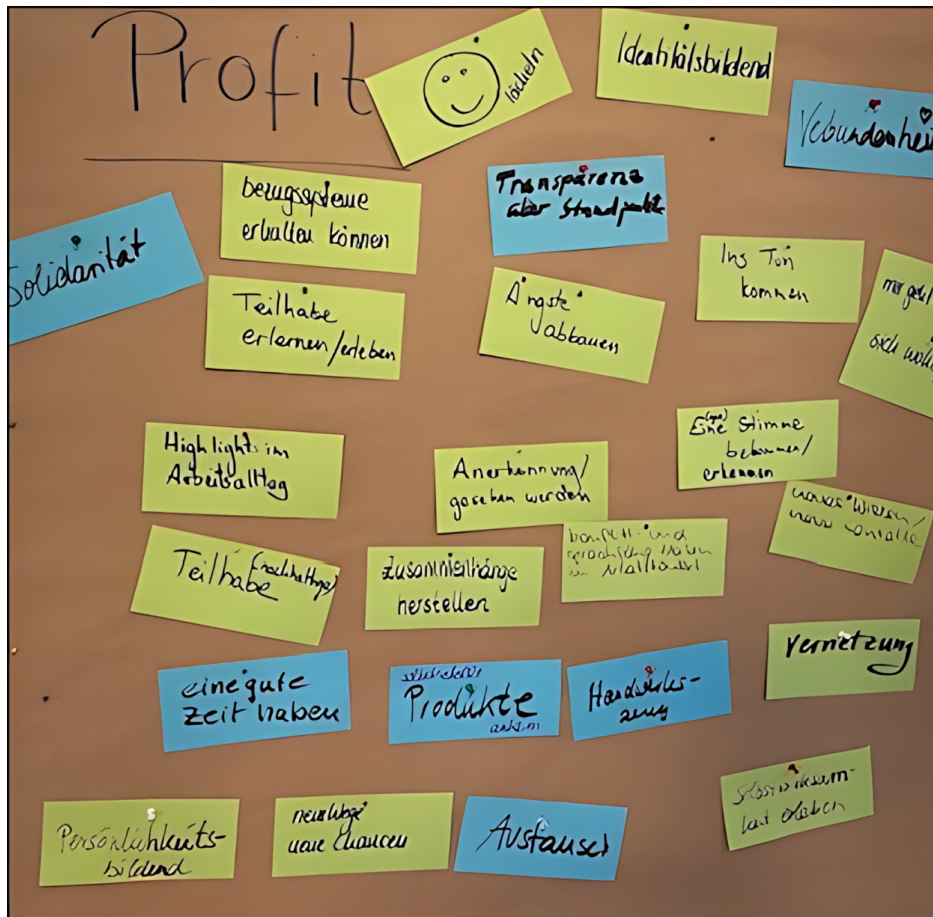 Profit
lächeln
Identitätsbildend
Verbundenheit
bezugssysteme
erhalten können
Transparenz
über Standpunkte
Solidarität
Ins Tun
kommen
Teilhabe
erlernen/erleben
Ängste
abbauen
mir geht
sich wohl
Highlights im
Arbeitsalltag
Anerkennung/
gesehen werden
Eine Stimme
bekommen/
erkennen
neues Wissen/
neue Kontakte
Teilhabe (nachhaltige)
Zusammenhänge
herstellen
und
im
eine gute
Zeit haben
Produkte
Handwerks-
zeug
Vernetzung
Persönlichkeits-
bildend
neue Wege
neue Chancen
Austausch
Selbstwirksam-
keit erleben